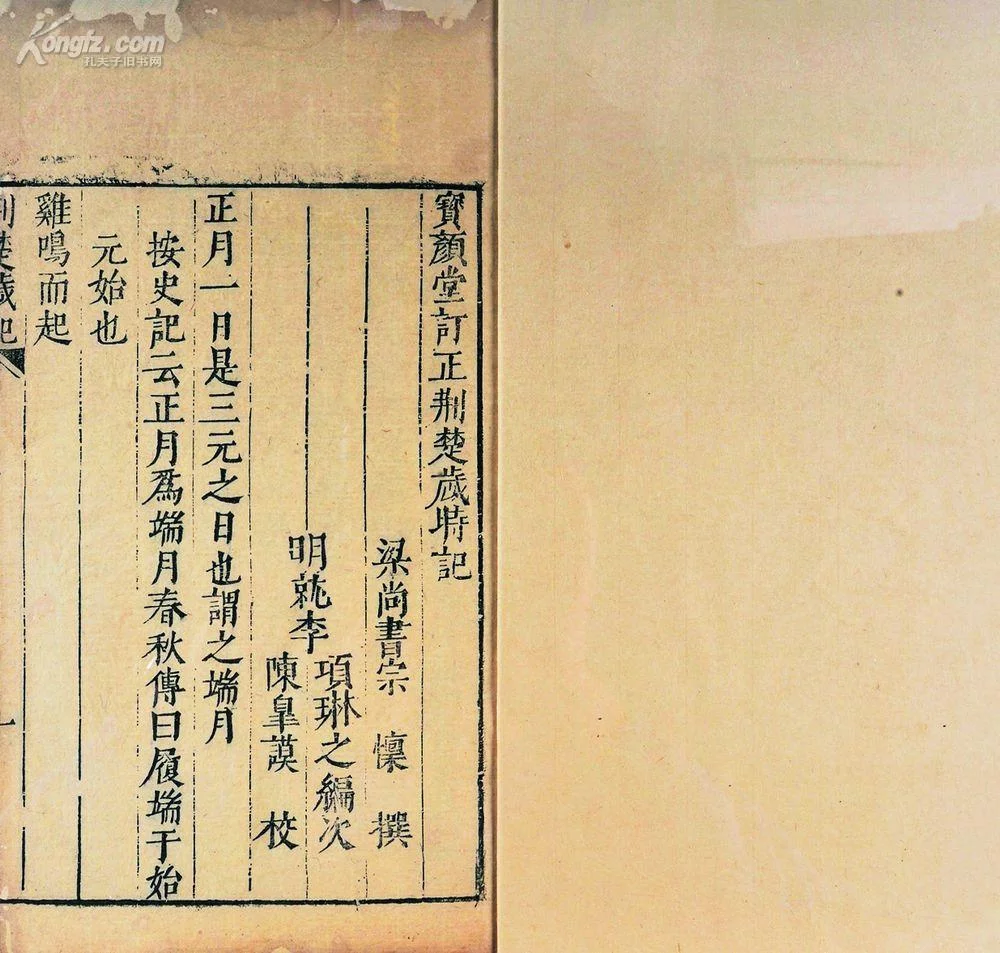 寶顏堂訂正荆楚歲時記
梁尚書宗　懍　撰
明就李
項琳之編次
陳皐謨　校
正月一日是三元之日也謂之端月
按史記云正月爲端月春秋傳曰履端于始
元始也
雞鳴而起
荆楚歲記
一
Kongfz.com
孔夫子旧书网